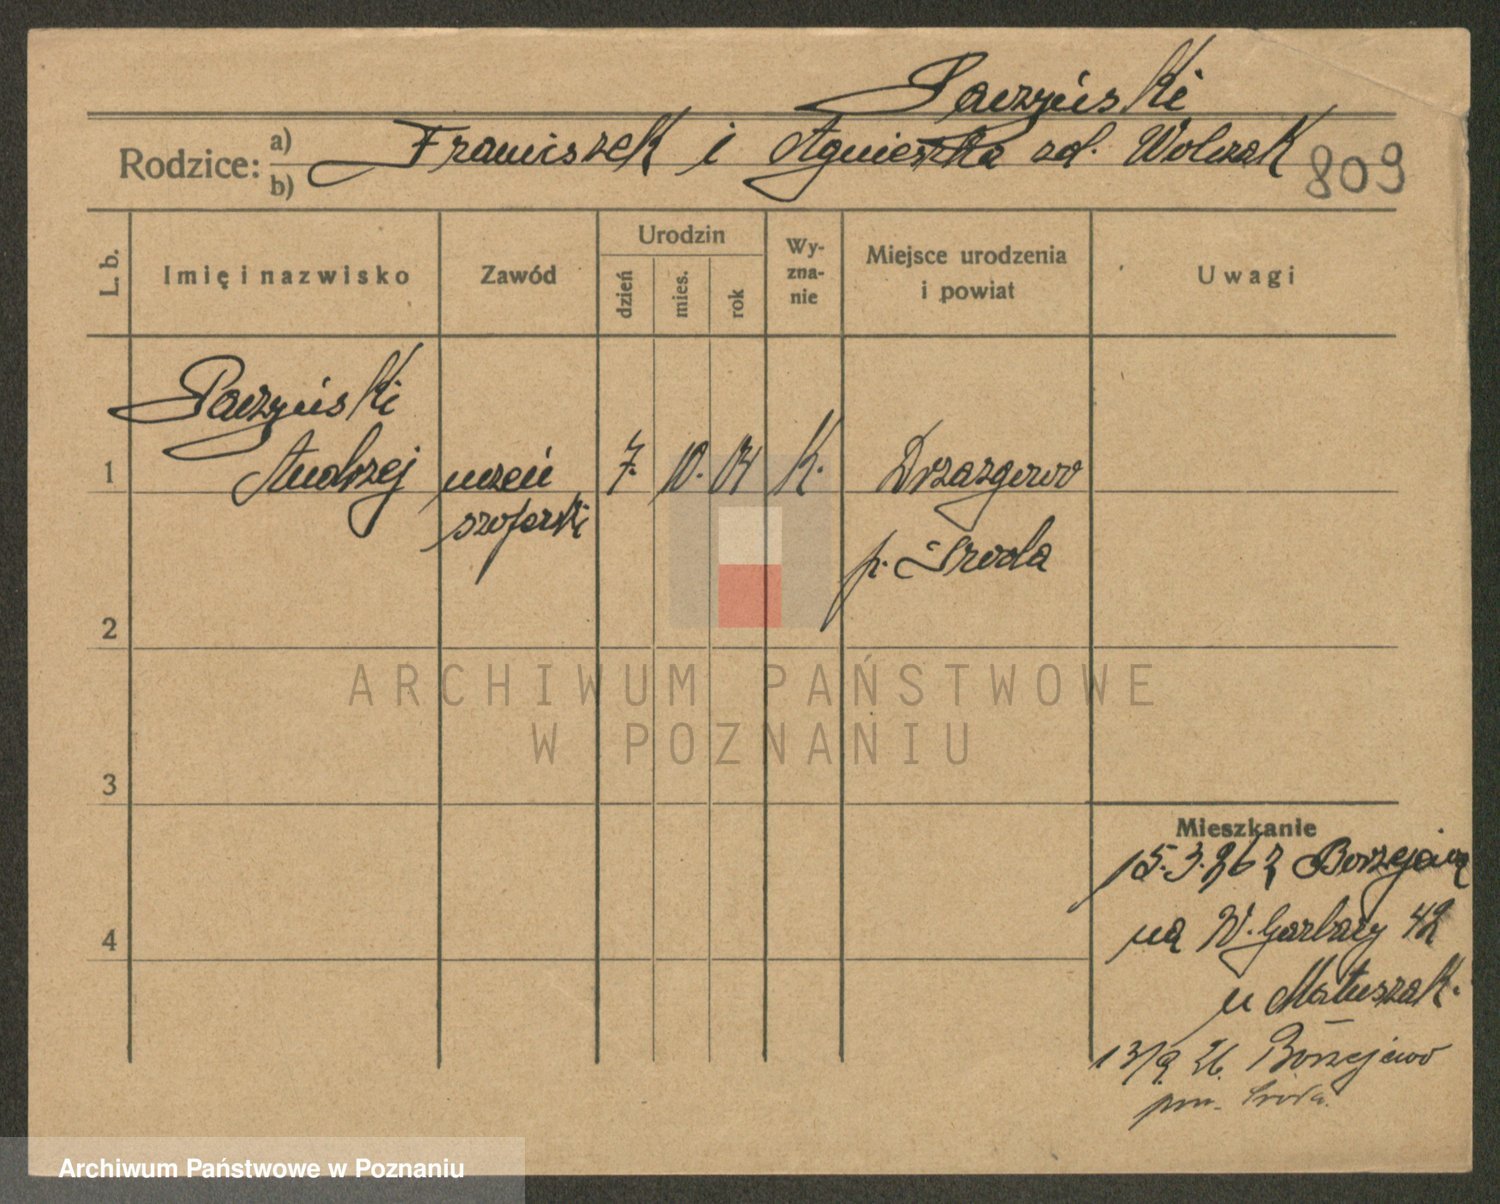 Paczyński
Rodzice: a) Franciszek i Agnieszka zd. Wolczak
b)
809
L. b.
Imię i nazwisko
Zawód
Urodzin
dzień
mies.
rok
Wy-
zna-
nie
Miejsce urodzenia
i powiat
Uwagi
Paczyński
1 Andrzej uczeń 7. 10. 04 K. Drzazgowo
szoferski
p. Środa
2
3
4
Mieszkanie
15.3.26 z Borzejewa
na W. Garbary 42
u Matuszak.
13/9 26. Borzejewo
pow. Środa.
ARCHIWUM PAŃSTWOWE
W POZNANIU
Archiwum Państwowe w Poznaniu